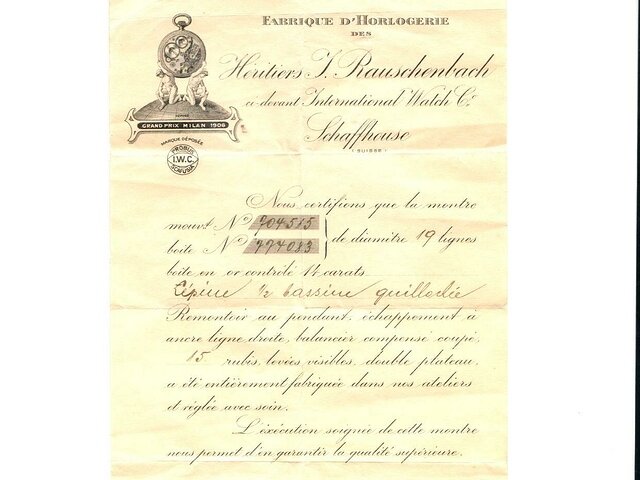 FABRIQUE D'HORLOGERIE
DES
Héritiers J. Rauschenbach
ci-devant International Watch Co
Schaffhouse
(SUISSE)
GRAND PRIX MILAN 1906
MARQUE DÉPOSÉE
PROBUS
I.W.C.
SCAFUSIA
Nous certifions que la montre
mouvt No 704515
boîte No 774083
de diamètre 19 lignes
boîte en or contrôlé 14 carats
Lépine ½ bassine guillochée
Remontoir au pendant, échappement à
ancre ligne droite, balancier compensé coupé,
15 rubis, levées visibles, double plateau,
a été entièrement fabriquée dans nos ateliers
et réglée avec soin.
L'éxécution soignée de cette montre
nous permet d'en garantir la qualité supérieure.